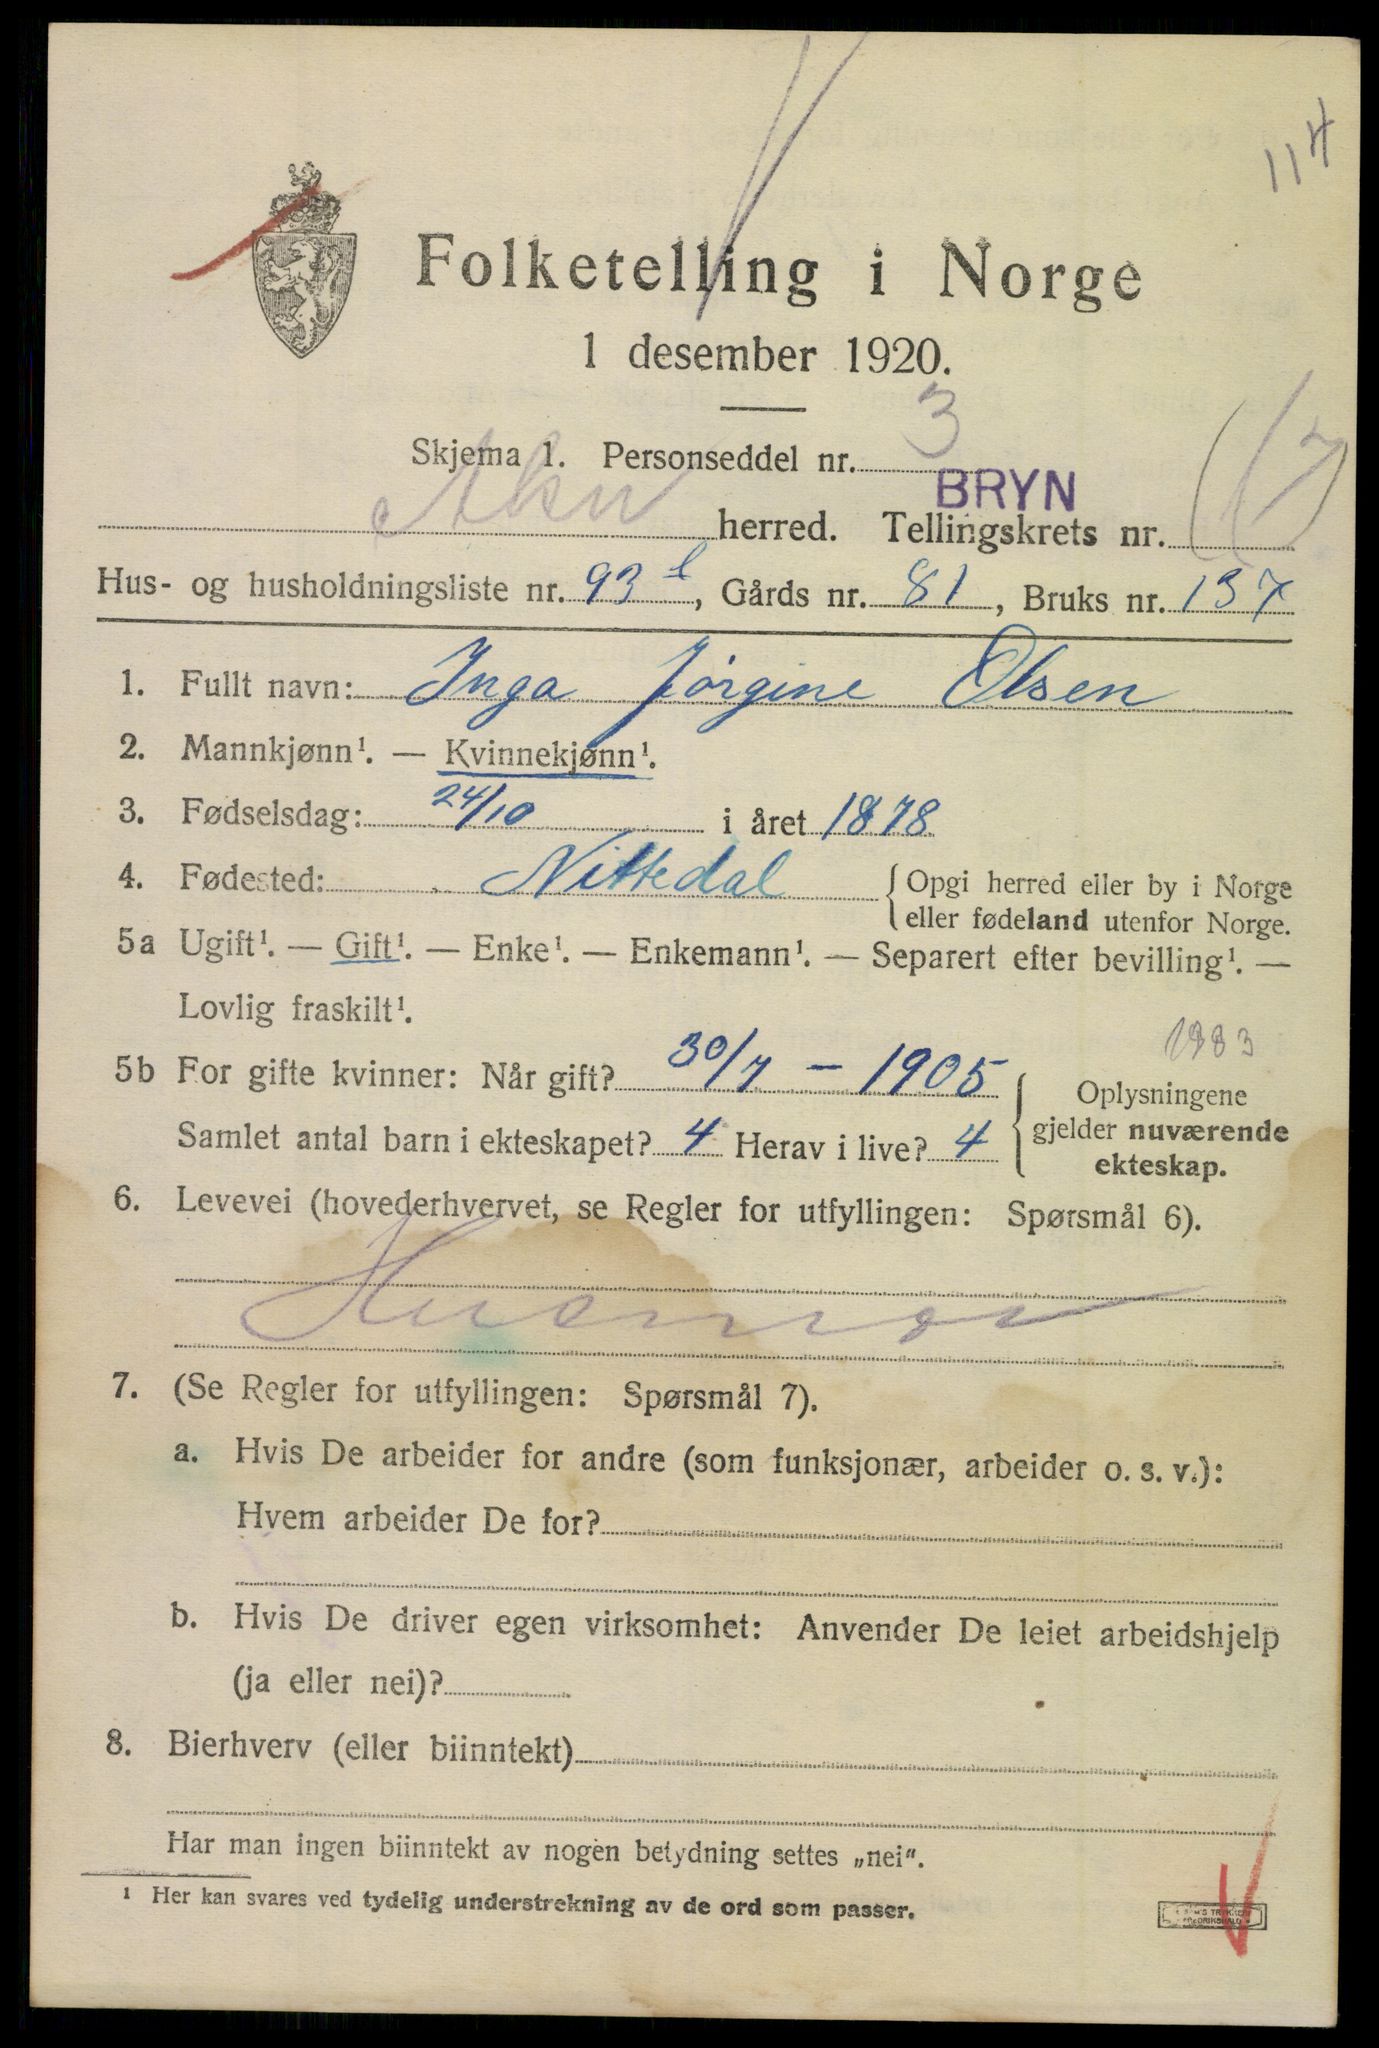 114
Folketelling i Norge
1 desember 1920.
Skjema 1. Personseddel nr. 3
BRYN
Aker herred. Tellingskrets nr. (17)
Hus- og husholdningsliste nr. 93 l, Gårds nr. 81, Bruks nr. 137
1. Fullt navn: Inga Jørgine Olsen
2. Mannkjønn¹. — Kvinnekjønn¹.
3. Fødselsdag: 24/10 i året 1878
4. Fødested: Nittedal { Opgi herred eller by i Norge
eller fødeland utenfor Norge.
5a Ugift¹. — Gift¹. — Enke¹. — Enkemann¹. — Separert efter bevilling¹. —
Lovlig fraskilt¹.
5b For gifte kvinner: Når gift? 30/7 – 1905
Samlet antal barn i ekteskapet? 4 Herav i live? 4
Oplysningene
gjelder nuværende
ekteskap.
6. Levevei (hovederhvervet, se Regler for utfyllingen: Spørsmål 6).
Husmor
7. (Se Regler for utfyllingen: Spørsmål 7).
a. Hvis De arbeider for andre (som funksjonær, arbeider o. s. v.):
Hvem arbeider De for?
b. Hvis De driver egen virksomhet: Anvender De leiet arbeidshjelp
(ja eller nei)?
8. Bierhverv (eller biinntekt)
Har man ingen biinntekt av nogen betydning settes „nei“.
¹ Her kan svares ved tydelig understrekning av de ord som passer.